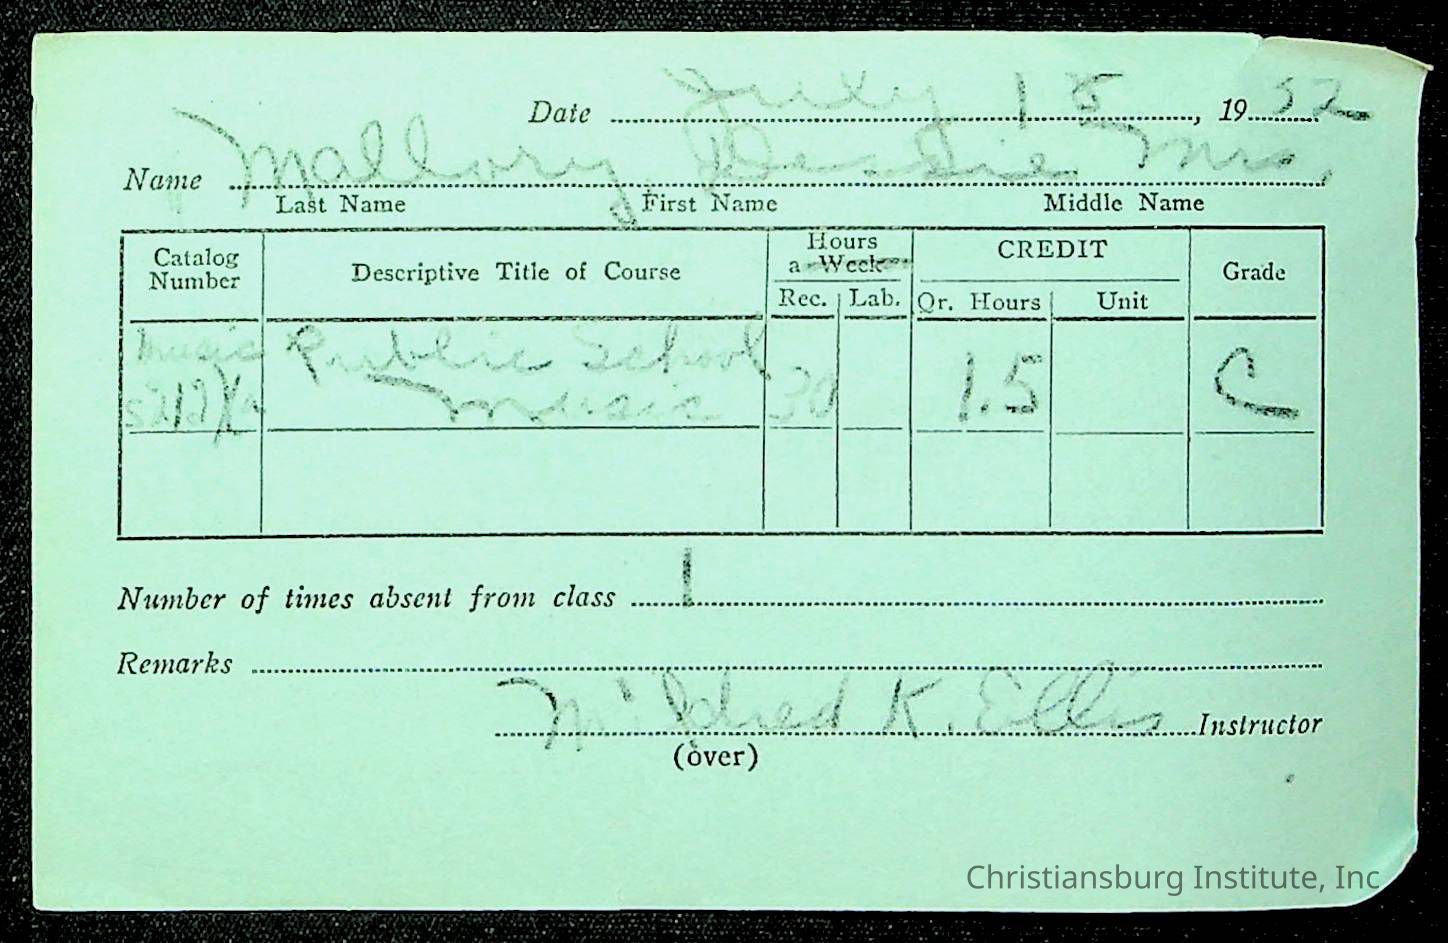 Date July 15, 1932
Name Mallory, Bessie Mrs.
Last Name First Name Middle Name
Catalog Number Descriptive Title of Course Hours a Week CREDIT Grade
Rec. Lab. Qr. Hours Unit
Music Public School
Music 30 1.5 C
Number of times absent from class 1
Remarks
Mildred K. Ellis Instructor
(over)
Christiansburg Institute, Inc